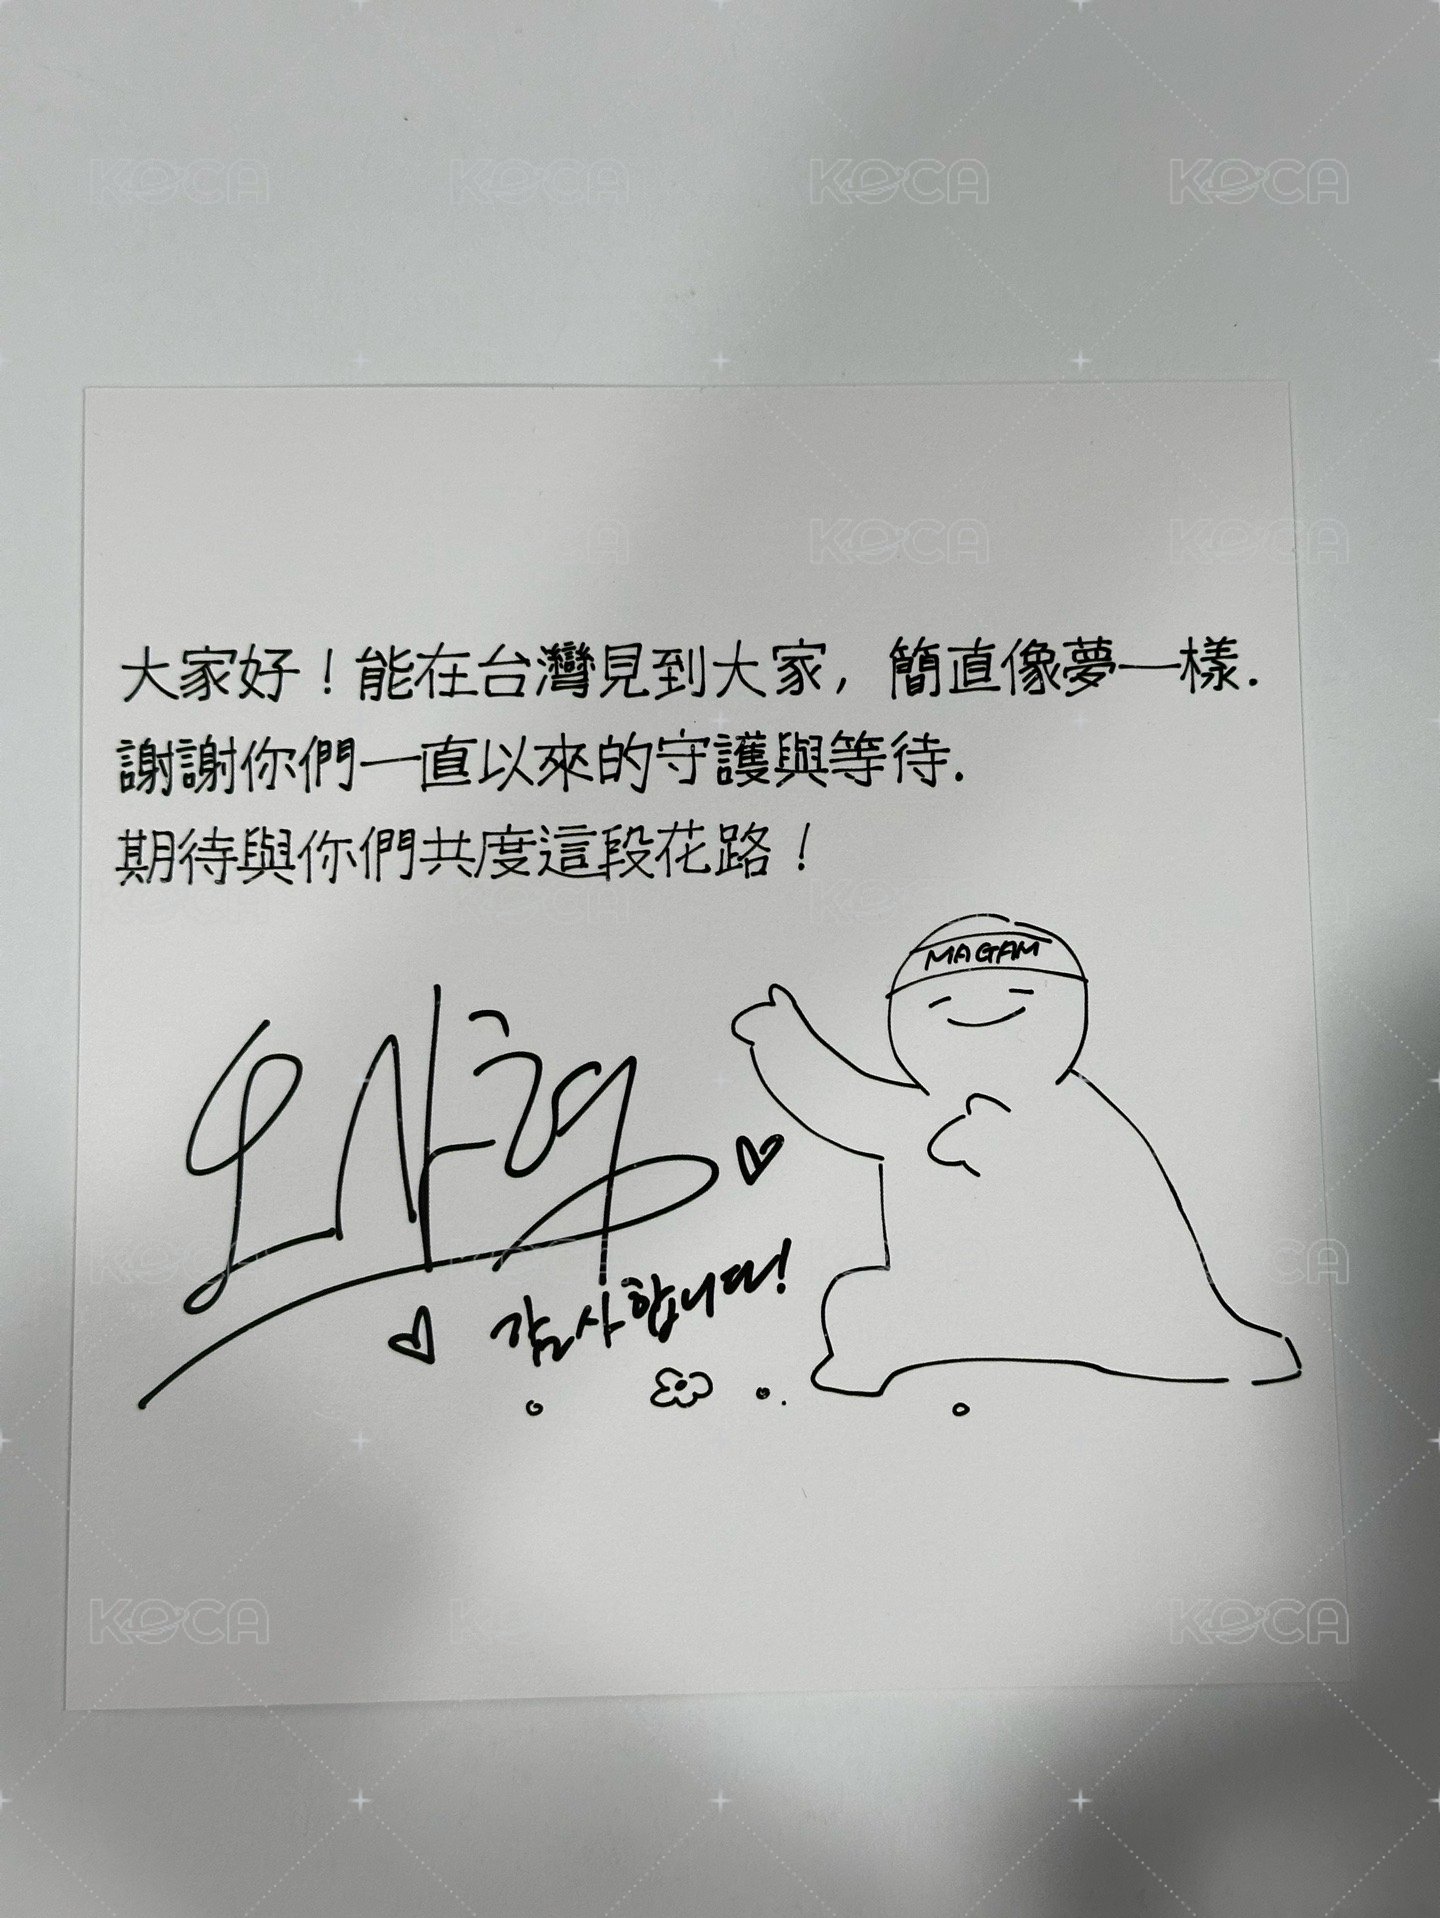 KOCA
大家好！能在台灣見到大家，簡直像夢一樣.
謝謝你們一直以來的守護與等待.
期待與你們共度這段花路！
MAGAM
감사합니다!